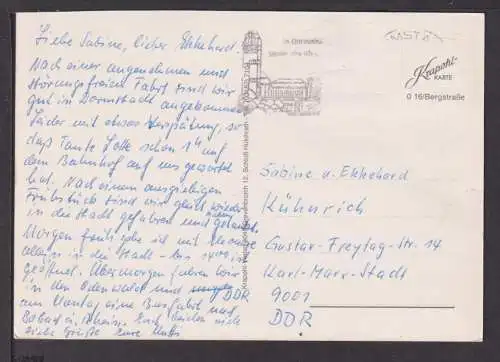 Liebe Sabine, lieber Ekkehard.
Nach einer angenehmen und
störungsfreien Fahrt sind wir
gut in Darmstadt angekommen
Leider mit etwas Verspätung, so
daß Tante Lotte schon 1 Std auf
dem Bahnhof auf uns gewartet
hat. Nach einem ausgiebigen
Frühstück sind wir gleich wieder
in die Stadt gefahren und
Morgen früh gehe ich mit
allein in die Stadt - bis
geöffnet. Übermorgen fahren wir
in den Odenwald und
am Montag eine Busfahrt nach
Euch beiden
Grüße Eure Mutti
DDR
In Darmstadt
Krapohl-
KARTE
G 16/Bergstraße
Sabine u. Ekkehard
Kühnrich
Gustav-Freytag-Str. 14
Karl-Marx-Stadt
9001
DDR